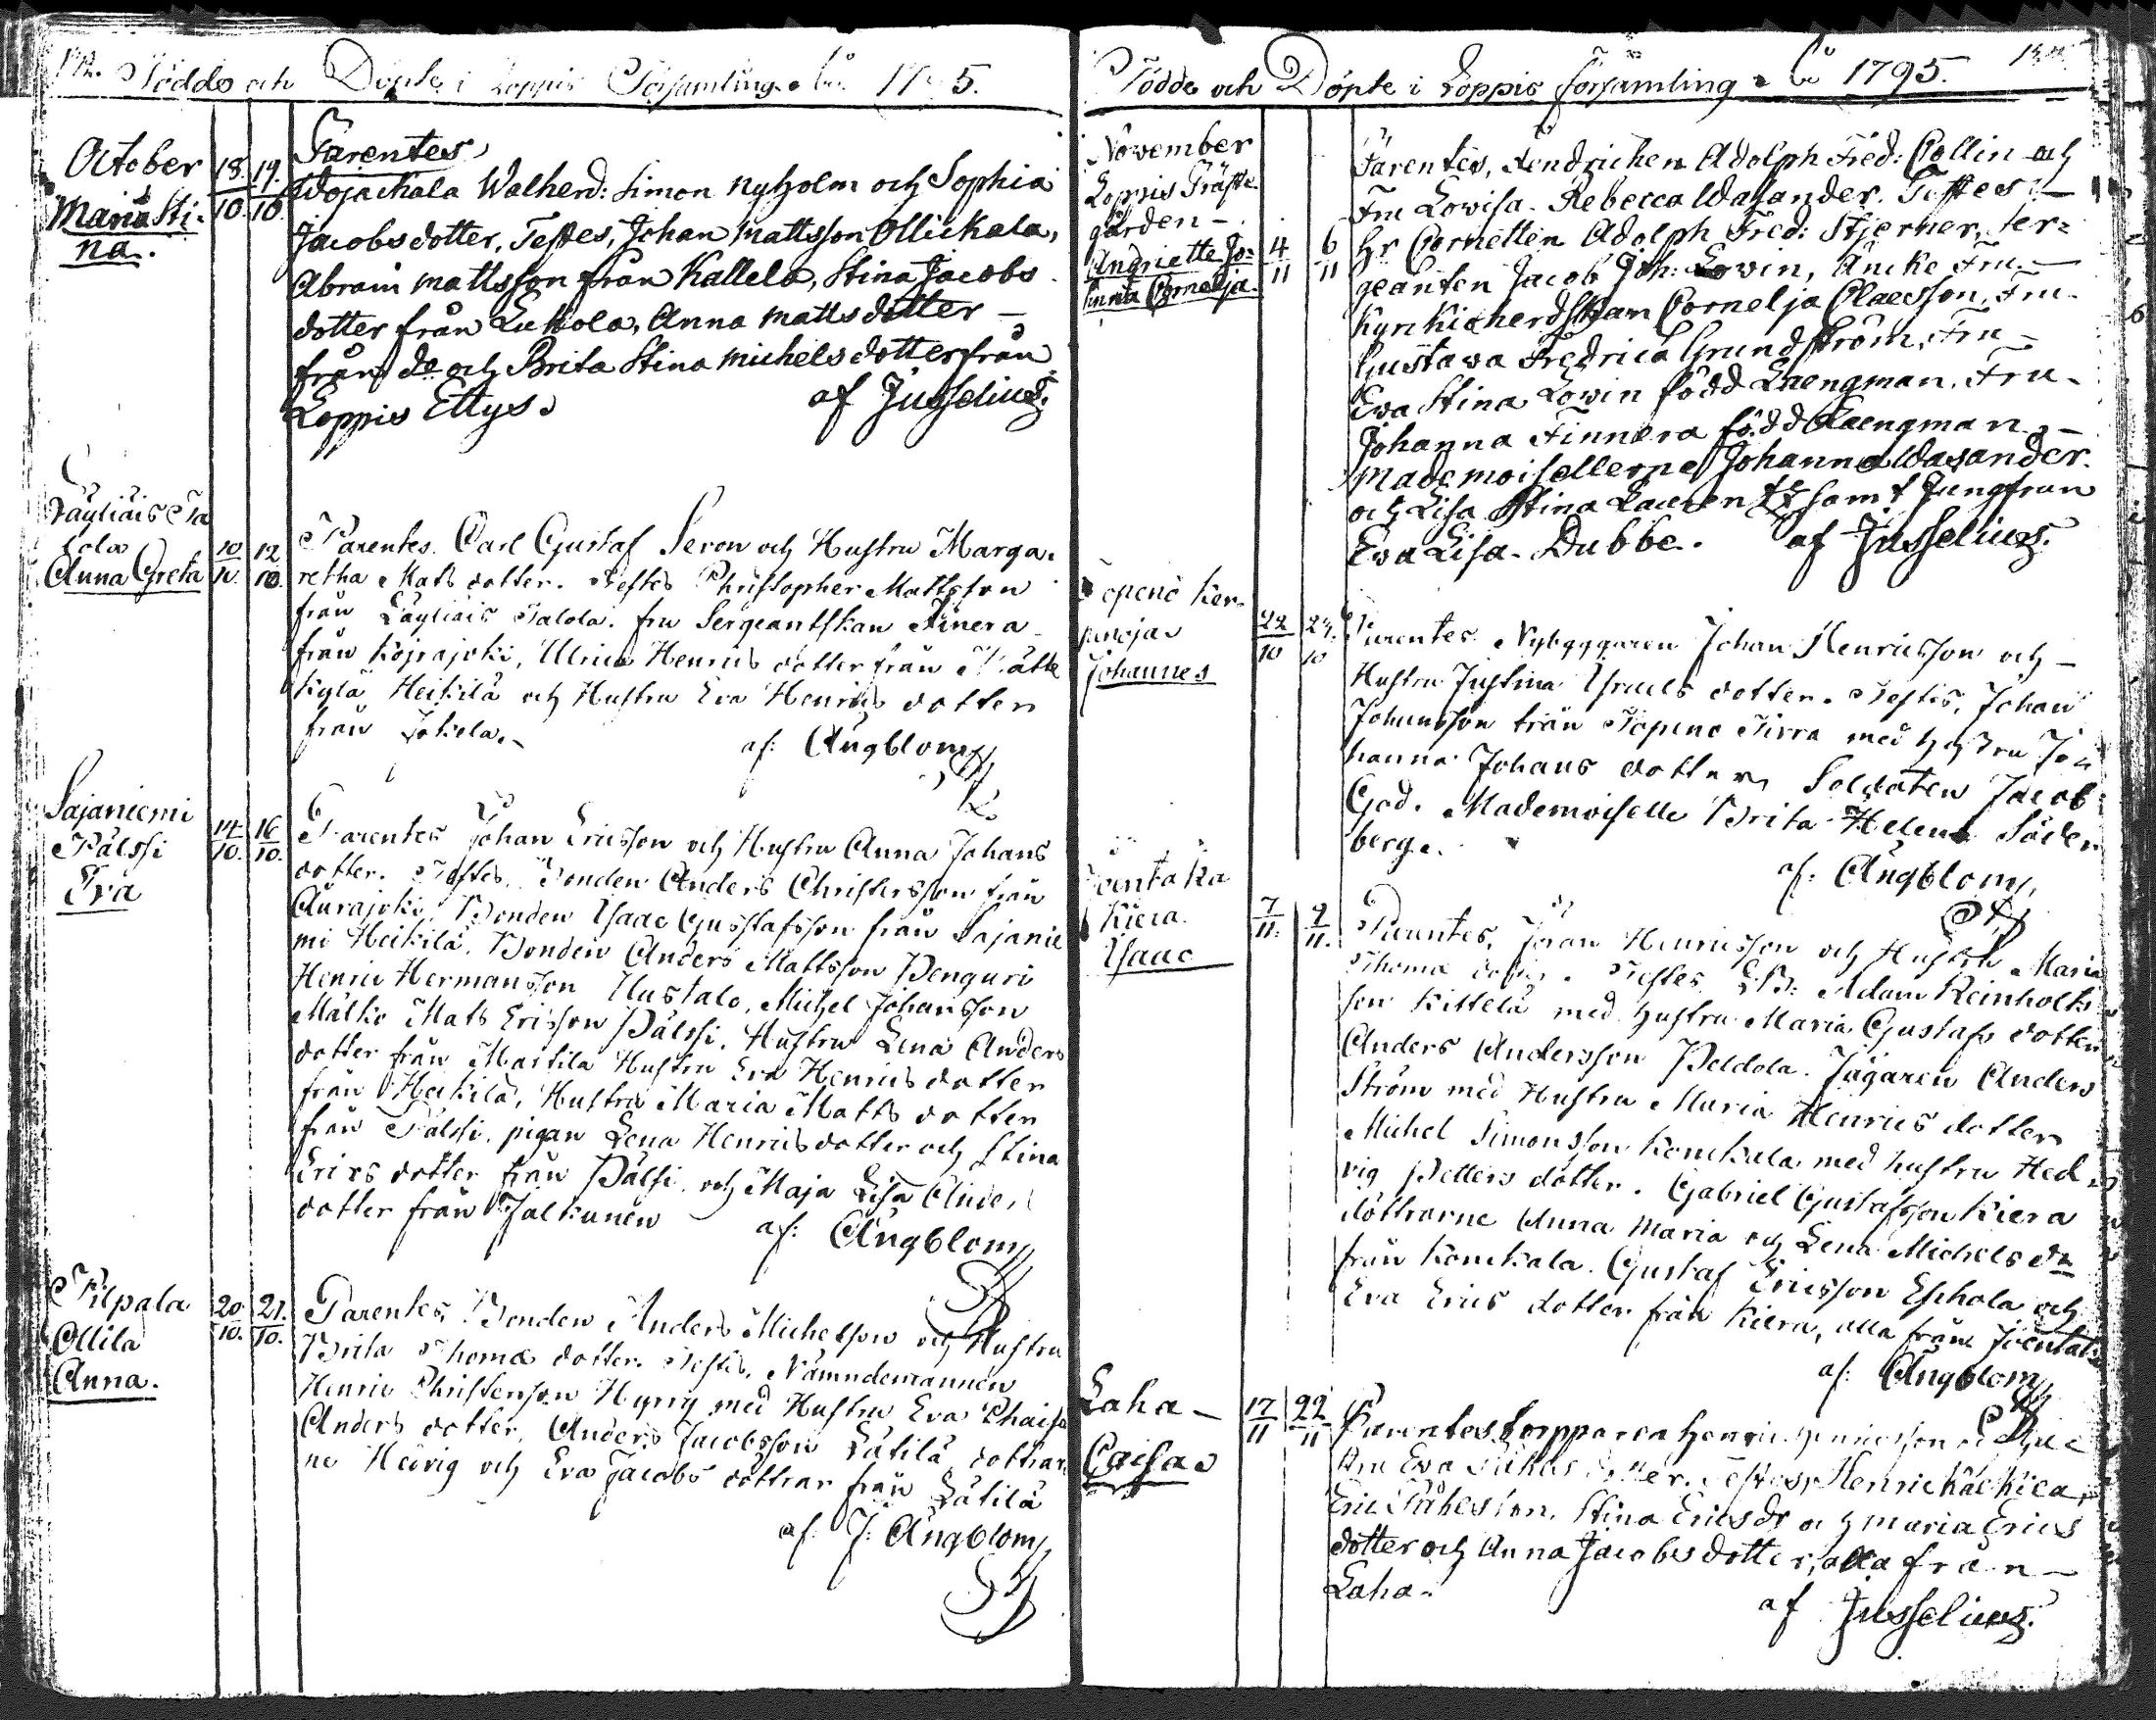 Födde och Döpte i Loppis Församling Åår 1795.
October 18. 19.
10. 10.
Maria Sti-
na.
Parentes
Wojackala Walherd: Simon Nyholm och Sophia
Jacobsdotter, Testes, Johan Mattsson Ollickala,
Abram Mattsson från Kallela, Stina Jacobs
dotter från Lukkola, Anna Mattsdotter –
från do och Brita Stina Michelsdotter från
Loppis Ettys.
af Jusselius.
Läyliäis Ta
lola
Anna Greta
10 12
10. 10.
Parentes. Carl Gustaf Seron och Hustru Marga-
retha Mats dotter. Testes Christopher Mattsson
från Läyliäis Talola. fru Sergeantskan Finera
från Kojrajoki, Ulrica Henrics dotter från
Kylä Heikilä och Hustru Eva Henrics dotter
från Jokela.
af: Ångblom
Sajaniemi
Pälssi
Eva
14 16
10. 10.
Parentes Johan Ericsson och Hustru Anna Johans
dotter. Testes. Bonden Anders Christersson från
Aurajoki, Bonden Isaac Gustafsson från Sajanie
mi Heikilä, Bonden Anders Mattsson Penguri
Henric Hermansson Uustalo, Michel Johansson
Mälko Mats Ericsson Pälssi, Hustru Lena Anders
dotter från Martila Hustru Eva Henrics dotter
från Heikilä, Hustru Maria Matts dotter
från Pälssi, pigan Lena Henricsdotter och Stina
Erics dotter från Pälsi, och Maja Lisa Anders
dotter från Jalkanen
af: Ångblom
Pilpala
Ollila
Anna.
20. 21.
10. 10.
Parentes, Bonden Anders Michelsson och Hustru
Brita Thomæ dotter. Testes, Nämndemannen
Henric Christersson Hyrry med Hustru Eva
Anders dotter, Anders Jacobsson Lätilä dottrar
ne Hedvig och Eva Jacobs döttrar från Lätilä
af. J: Ångblom
Födde och Döpte i Loppis församling Åår 1795.
November
Loppis Präste
gården –
Andriette Jo-
Cornelja.
4 6
11 11
Parentes, Fendrichen Adolph Fred: Collin och
Fru Lovisa Rebecca Wasander. Testes –
Hr Cornetten Adolph Fred: Stjerner, Ser-
geanten Jacob Joh: Lovin, Änke Fru –
Kyrkioherdskan Cornelja Claesson, Fru
Gustava Fredrica Grundström, Fru –
Eva Stina Lovin född Laengman, Fru –
Johanna Finnera född Laengman –
Mademoisellerne Johanna Wasander
och Lisa Stina samt Jungfrun
Eva Lisa Dubbe.
af Jusselius.
Topeno Ker-
Johannes
22 24
10 10
Parentes Nybyggaren Johan Henricsson och –
Hustru Justina Israels dotter. Testes, Johan
Johansson från Topeno Pirra med Hustru Jo
hanna Johans dotter, Soldaten Jacob
God. Mademoiselle Brita Helena Söder
berg.
af: Ångblom
Joentaka
Kiera
Isaac
7 9
11. 11.
Parentes, Johan Henricsson och Hustru Maria
Thomæ dotter. Testes, Adam Reinholts
son Kittelä med Hustru Maria Gustafs dotter
Anders Andersson Peldola. Jägaren Anders
Ström med Hustru Maria Henrics dotter
Michel Simonsson Konckala med hustru Hed
vig Petters dotter. Gabriel Gustafsson Kiera
döttrarne Anna Maria och Lena Michels dr
från Konckala. Gustaf Ericsson Eskola och
Eva Erics dotter från Kiera, alla från Joentaka
af: Ångblom
Laha –
Caisa
17 22
11 11
Parentes Torpparen Henric Henricsson och Hu-
stru Eva dotter. Testes, Henric
Eric Påhlsson, Stina Ericsdr och Maria Erics
dotter och Anna Jacobsdotter, alla från –
Laha.
af Jusselius.